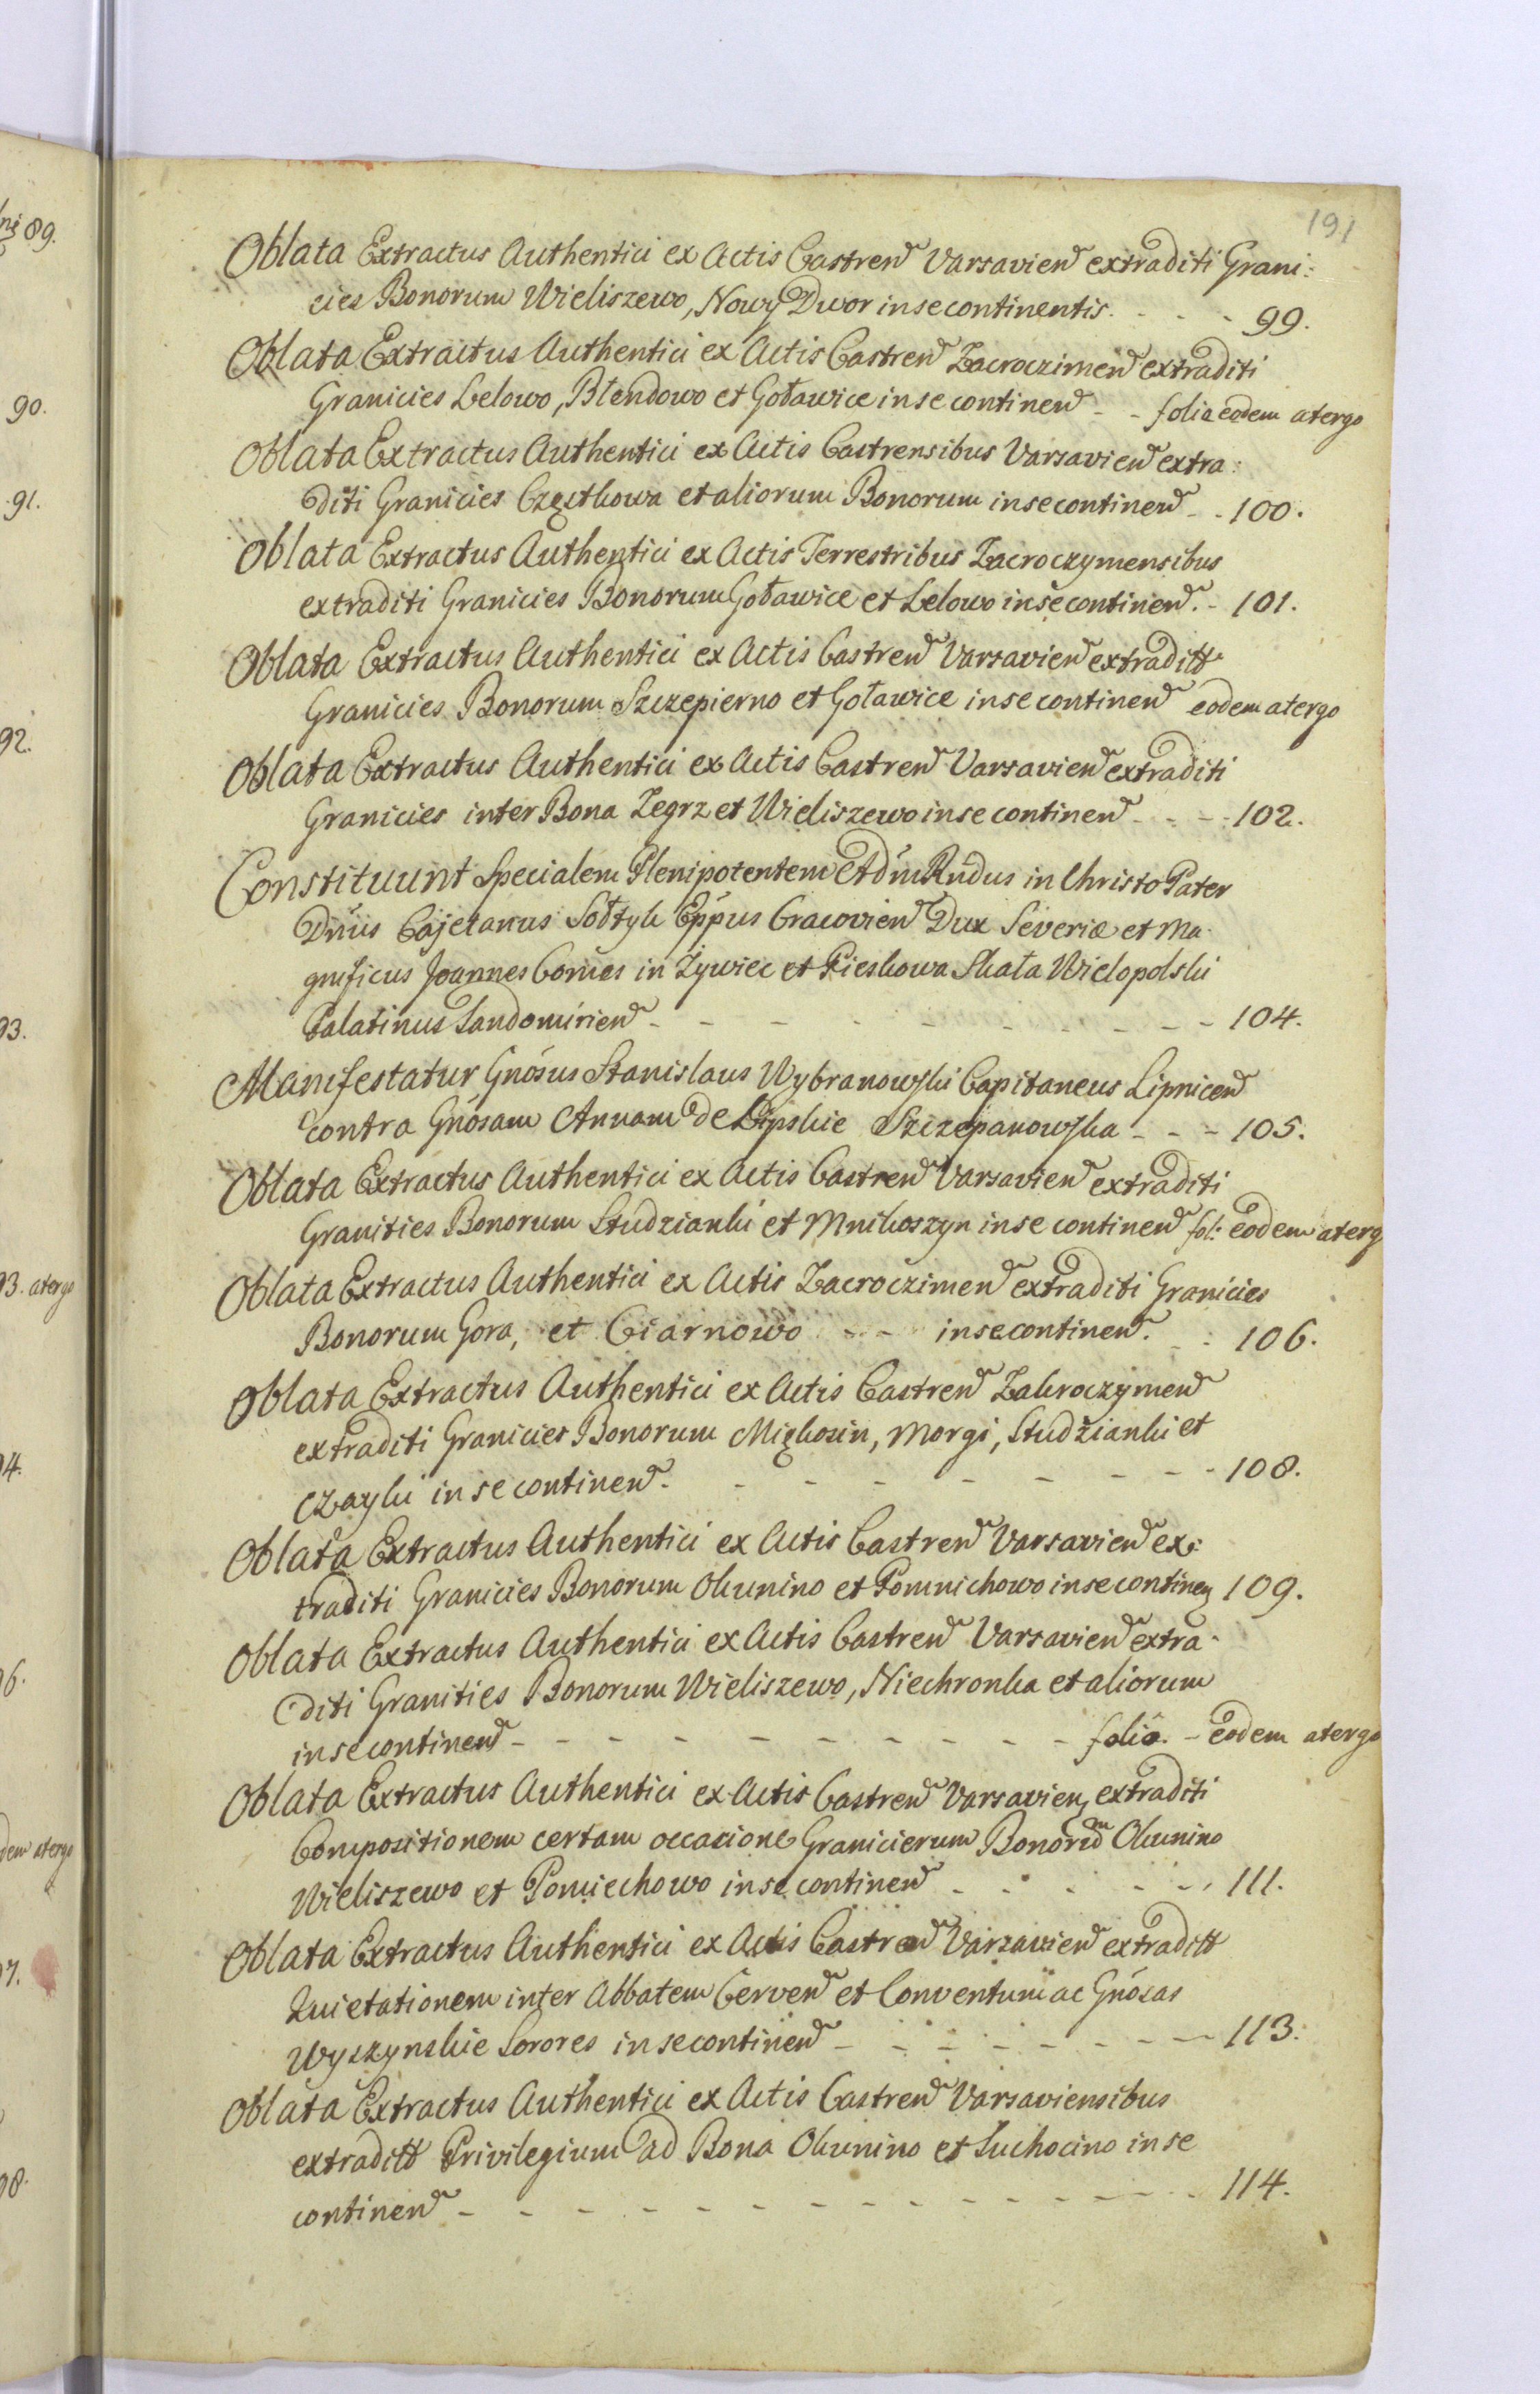 191
Oblata Extractus Authentici ex Actis Castren Varsavien extraditi Grani:
cies Bonorum Wieliszewo, Nowy Dwor in se continentis. - - - 99.
Oblata Extractus Authentici ex Actis Castren Zacroczimen extraditi
Granicies Lelowo, Błendowo et Goławice in se continen - - folio eodem atergo
Oblata Extractus Authentici ex Actis Castrensibus Varsavien extra:
diti Granicies Częstkowa et aliorum Bonorum in se continen - - 100.
Oblata Extractus Authentici ex Actis Terrestribus Zacroczymensibus
extraditi Granicies Bonorum Goławice et Lelowo in se continen. - 101.
Oblata Extractus Authentici ex Actis Castren Varsavien extraditt
Granicies Bonorum Szczepierno et Goławice in se continen eodem atergo
Oblata Extractus Authentici ex Actis Castren Varsavien extraditi
Granicies inter Bona Zegrz et Wieliszewo in se continen - - - 102.
Constituunt Specialem Plenipotentem Rndus in Christo Pater
Dnus Cajetanus Sołtyk Eppus Cracovien Dux Severiæ et Ma-
gnificus Joannes Comes in Zywiec et Pieskowa Skała Wielopolski
Palatinus Sandomirien - - - - - - - - - 104.
Manifestatur Gnosus Stanislaus Wybranowski Capitaneus Lipnicen
contra Gnosam Annam de Lipskie Szczepanowska - - - 105.
Oblata Extractus Authentici ex Actis Castren Varsavien extraditi
Granities Bonorum Studzianki et Mnikoszyn in se continen fol: eodem aterg
Oblata Extractus Authentici ex Actis Zacroczimen extraditi Granicies
Bonorum Gora, et Ciarnowo - - in se continen. - - 106.
Oblata Extractus Authentici ex Actis Castren Zakroczymen
extraditi Granicies Bonorum Migkosin, Morgi, Studzianki et
Czayki in se continen. - - - - - - - - 108.
Oblata Extractus Authentici ex Actis Castren Varsavien ex:
traditi Granicies Bonorum Okunino et Pomnichowo in se continen 109.
Oblata Extractus Authentici ex Actis Castren Varsavien extra-
diti Granities Bonorum Wieliszewo, Niechronka et aliorum
in se continen - - - - - - - - - - folio. - eodem atergo
Oblata Extractus Authentici ex Actis Castren Varsavien extraditi
Compositionem certam occasione Granicierum Bonorum Okunino
Wieliszewo et Pomiechowo in se continen - - - - - 111.
Oblata Extractus Authentici ex Actis Castren Varsavien extraditt
Quietationem inter Abbatem Cerven et Conventum ac Gnosas
Wyszynskie Sorores in se continen - - - - - - - 113.
Oblata Extractus Authentici ex Actis Castren Varsaviensibus
extraditt Privilegium ad Bona Okunino et Suchocino in se
continen - - - - - - - - - - - - 114.
89.
90.
91.
92.
93.
93. atergo
94.
96.
atergo
97.
98.